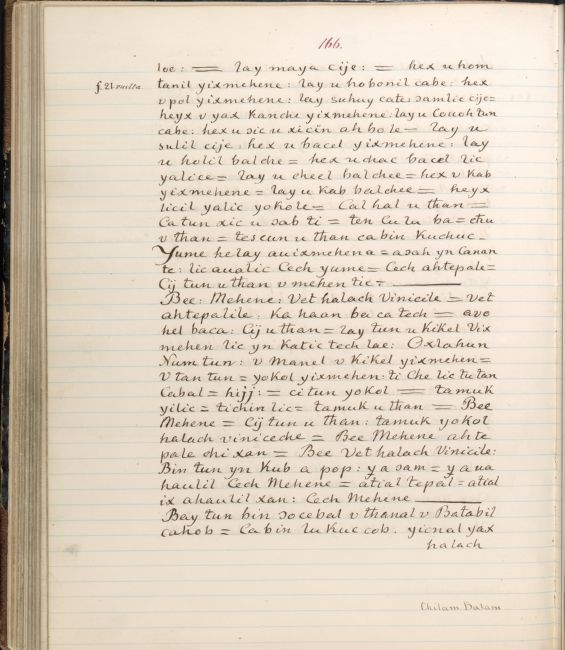 166.
loe: = lay maya cije: = hex u hom
f. 21 vuelta.
tanil yixmehene: lay u hobonil cabe: hex
v pol yixmehene: lay suhuy cate: samlic cije=
heyx v yax Kanche yixmehene: lay u Couoh tun
cabe: hex u sic u xicin ah bole = lay u
sulil cije: hex u bacel yixmehene: lay
u holil balche = hex u chac bacel lic
yalice = lay u cheel balchee = hex v Kab
yixmehene = lay u Kab balchee = heyx
licil yalic yokole = Cal hal u than =
Ca tun xic u sab ti = ten cu lu ba = chu
v than = tes cun u than ca bin Kuchuc_
Yume helay auixmehena = asah yn Canan
te: lic aualic Cech yume = Cech ahtepale=
Cij tun u than v mehen tic=
Bee: Mehene: Vet halach Vinicile = vet
ahtepalile: Ka haan ba ca tech = avo
hel baca: Cij u than = lay tun u Kikel Vix
mehen lic yn Katic tech lae: Oxlahun
Num tun: v Manel v Kikel yixmehen=
V tan tun = yokol yixmehen: ti Che lic tu tan
Cabal = hijj: = ci tun yokol = tamuk
yilic = tichin lic = tamuk u than = Bee
Mehene = Cij tun u than: tamuk yokol
halach viniceche = Bee Mehene ahte
pale chi xan = Bee Vet halach Vinicile:
Bin tun yn Kub a pop: y a sam = y a ua
haulil Cech Mehene = atial tepal = atial
ix ahaulil xan: Cech Mehene
Bay tun bin socebal v thanal v Batabil
cahob = Ca bin lukuc cob. yicnal yax
halach
Chilam Balam